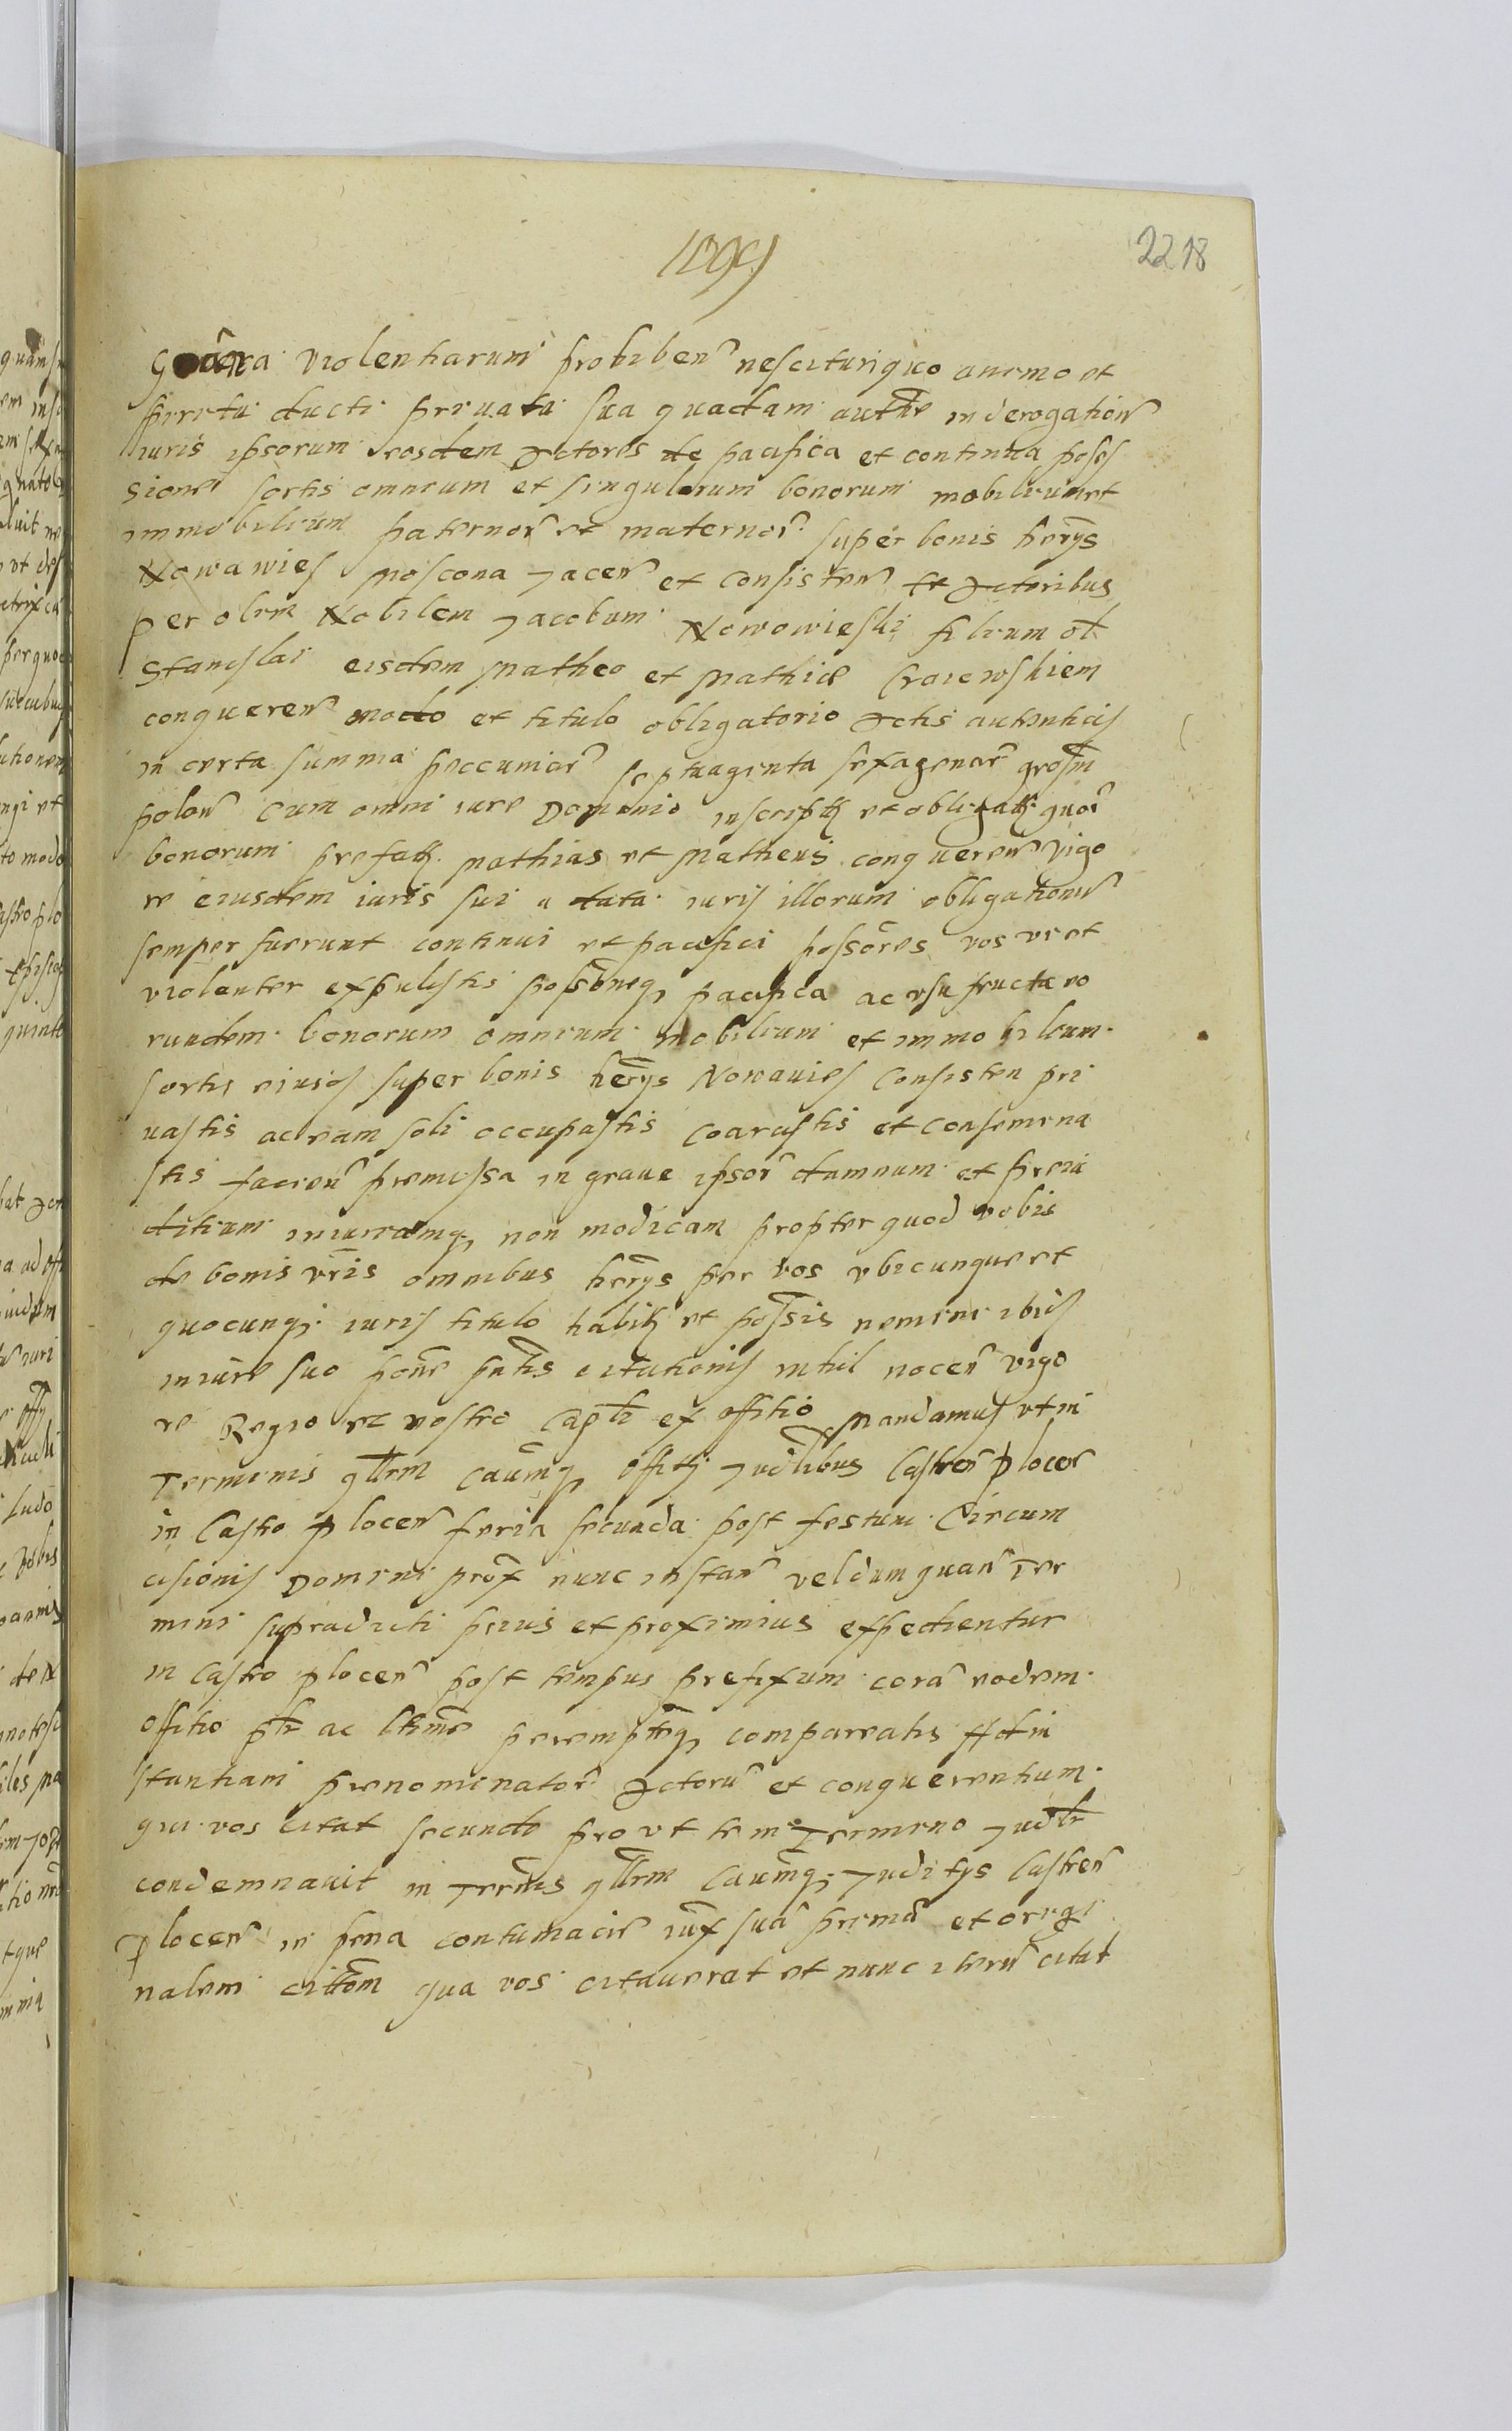 2218
violentiarum prohiben nescituriquo animo et
spiritu ducti privata sua quadam authte in derogation
iuris ipsorum eosdem Actores de pacifica et continua posses
sione sortis omnium et singulorum bonorum mobilium et
immobilium paternor et maternor super bonis hrrys
Nowawies Moscona Jacen et consisten Actoribus
per olim Nobilem Jacobum Nowowieski filium ol
Stanislai eisdem Matheo et Mathiæ Craiewskiem
conqueren modo et titulo obligatorio Actis autenticis
in certa summa peccuniar septuaginta sexagenar grossm
polon cum omni iure Dominio inscriptt et obligatt quor
bonorum prefatt Mathias et Matheus conqueren vigo
re eiusdem iuris sui a data iuris illorum obligationis
semper fuerunt continui et pacifici possores vos vi et
violenter expulistis possoneq pacifica ac usu fructu eo
rundem bonorum omnium mobilium et immobilium
sortis eiusd super bonis herrys Nowavies Consisten pri
vastis ac eam soli occupastis coarastis et consemina
stis facien premissa in grave ipsor damnum et preiu
ditium iniuriamq non modicam propter quod vobis
de bonis vris omnibus herrys per vos ubicunque et
quocunq iuris titulo habitt et possis nemini ibid
in iure suo pone pntis citationis nihil nocen vigo
re Regio et nostro Captli ex offitio Mandamus ut in
Terminis qllrm Caumq offitt Judlibus Castren Plocen
in Castro Plocen feria secunda post festum Circum
cisionis Domini prox nunc instan vel dum quan Ter
mini supradicti prius et proximius expedientur
in Castro Plocen post tempus prefixum corã eodem
offitio ptr ac ltime peremptrq compareatis Ad in
stantiam prenominator Actorũ et conquerentium
qui vos citat secundo prout in Termino Judlr
condemnavit in Termis qllrm Caumq Juditys Castren
Plocen in pena contumacie iux suã primã et origi
nalem cittom qua vos citaverat et nunc iterũ citat